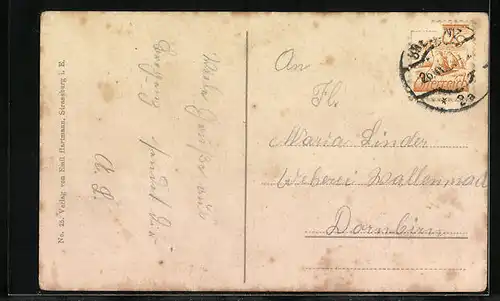 No. 15. Verlag von Emil Hartmann, Strassburg i. E.
Viele Grüße aus
Bregenz sendet Dir
A. L.
An
Fl.
Maria Linder
Weberei Wallenmad
Dornbirn